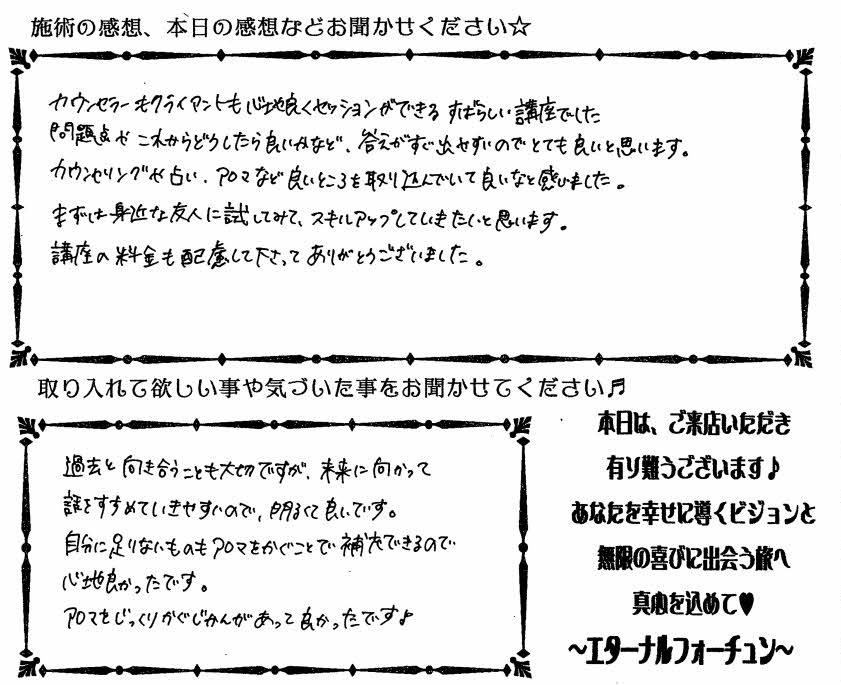 施術の感想、本日の感想などお聞かせください☆
カウンセラーもクライアントも心地良くセッションができる すばらしい講座でした
問題点や これからどうしたら良いかなど、答えがすぐ出せやすいのでとても良いと思います。
カウンセリングや占い、アロマなど良いところを取り込んでいて良いなと感じました。
まずは身近な友人に試してみて、スキルアップしていきたいと思います。
講座の料金も配慮して下さって ありがとうございました。
取り入れて欲しい事や気づいた事をお聞かせてください♬
過去と向き合うことも大切ですが、未来に向かって
話をすすめていきやすいので、明るくて良いです。
自分に足りないものもアロマをかぐことで補充できるので
心地良かったです。
アロマをじっくりかぐじかんがあって良かったです♪
本日は、ご来店いただき
有り難うございます♪
あなたを幸せに導くビジョンと
無限の喜びに出会う旅へ
真心を込めて♥
～エターナルフォーチュン～